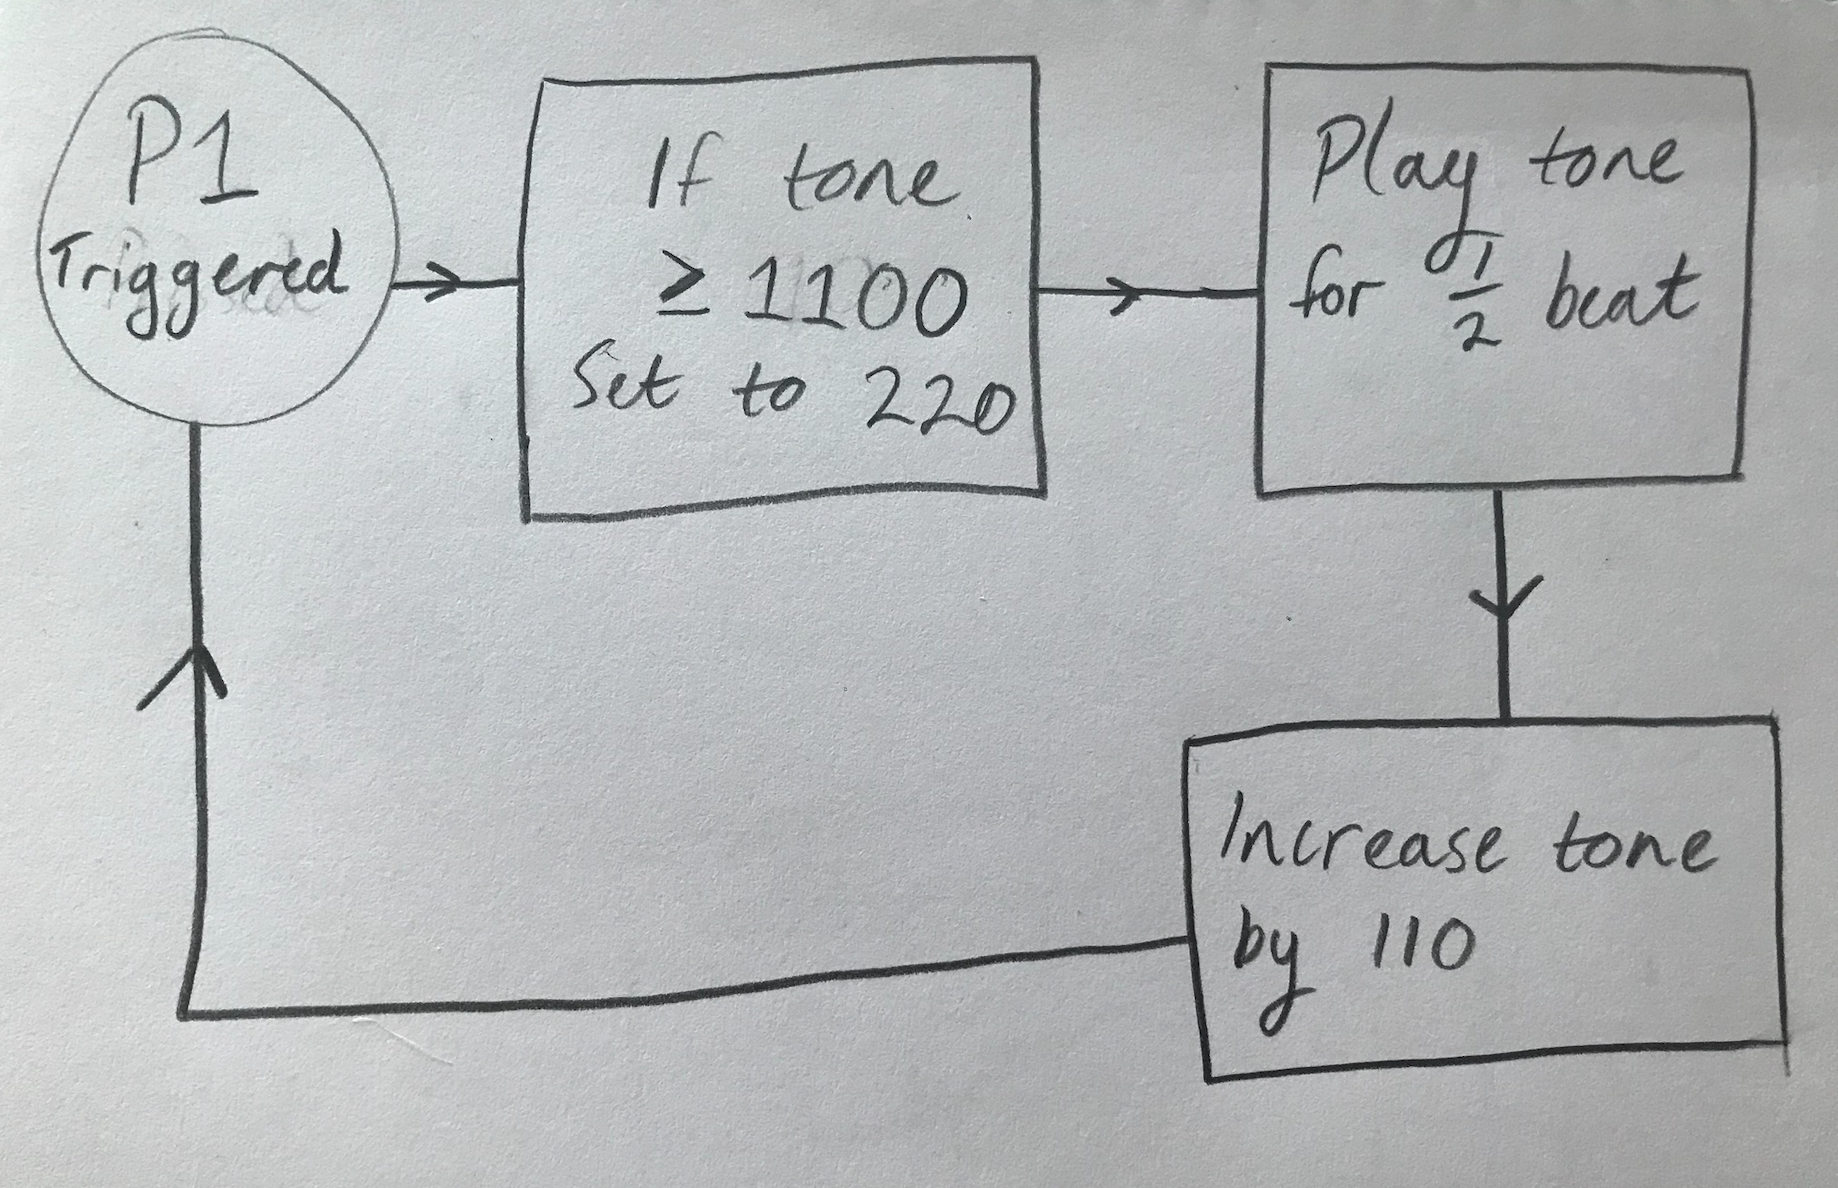 P1
Triggered
If tone
≥ 1100
Set to 220
Play tone
for 1/2 beat
Increase tone
by 110